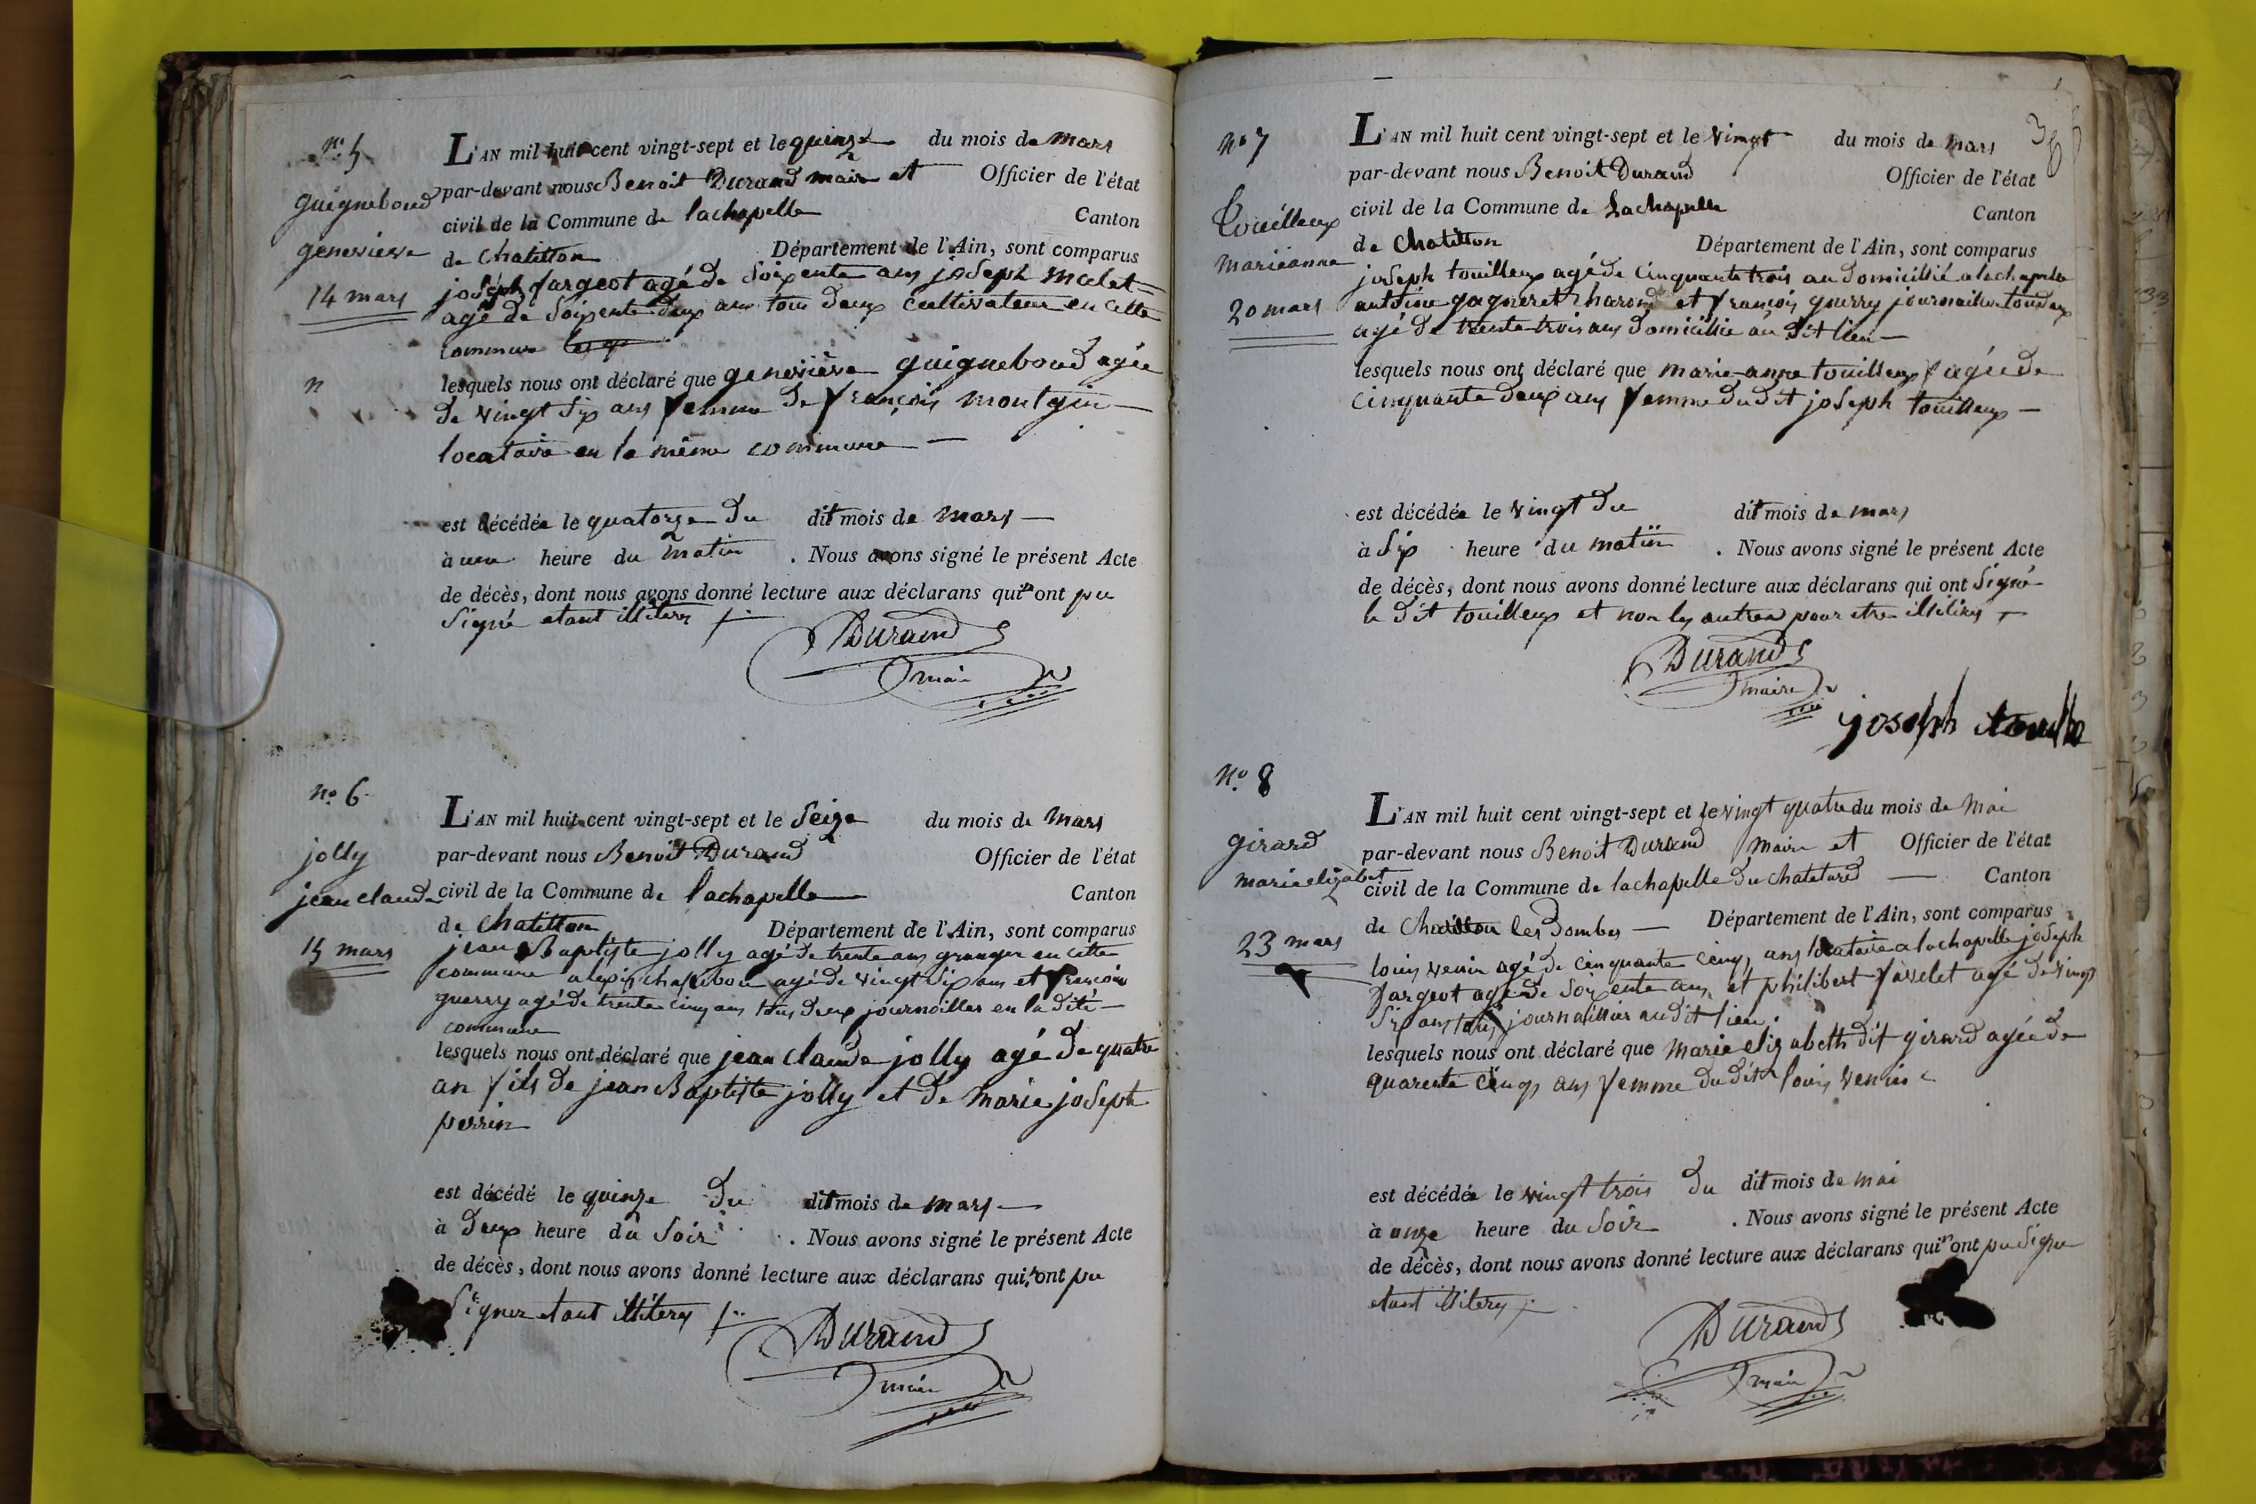 n.° 5
guigneboud
genevieve
14 mars
n
L'AN mil huit cent vingt-sept et le quinze du mois de mars
par-devant nous Benoit Durand maire et Officier de l'état
civil de la Commune de lachapelle Canton
de Chatillon Département de l'Ain, sont comparus
joseph fargeot agé de soixente ans joseph malet
agé de soixente deux ans tous deux cultivateur en cette
commune
lesquels nous ont déclaré que genevieve guigneboud agée
de vingt six ans femme de françois montgin
locataire en la même commune
est décédée le quatorze du dit mois de mars
à une heure du matin . Nous avons signé le présent Acte
de décès, dont nous avons donné lecture aux déclarans qui n'ont pu
signé etant illiterés
Durand
maire
n.° 6
jolly
jean claude
15 mars
L'AN mil huit cent vingt-sept et le seize du mois de mars
par-devant nous Benoit Durand Officier de l'état
civil de la Commune de lachapelle Canton
de Chatillon Département de l'Ain, sont comparus
jean Baptiste jolly agé de trente ans granger en cette
commune alexis agé de vingt six ans et françois
guerry agé de trente cinq ans tous deux journailler en la dite
commune
lesquels nous ont déclaré que jean claude jolly agé de quatre
an fils de jean Baptiste jolly et de marie joseph
perrin
est décédé le quinze du dit mois de mars
à deux heure du soir . Nous avons signé le présent Acte
de décès, dont nous avons donné lecture aux déclarans qui n'ont pu
signer etant illiterés
Durand
maire
36
n.° 7
touilleux
marieanne
20 mars
L'AN mil huit cent vingt-sept et le vingt du mois de mars
par-devant nous Benoit Durand Officier de l'état
civil de la Commune de Lachapelle Canton
de Chatillon Département de l'Ain, sont comparus
joseph touilleux agé de cinquante trois an domicillié a lachapelle
antoine gagneret charon et françois guerry journaillier tou deux
agé de trente trois ans domicillié au dit lieu
lesquels nous ont déclaré que marie anne touilleux agée de
cinquante deux ans femme du dit joseph touilleux
est décédée le vingt du dit mois de mars
à six heure du matin . Nous avons signé le présent Acte
de décès, dont nous avons donné lecture aux déclarans qui ont signé
le dit touilleux et non les autres pour etre illitérés
Durand
maire
joseph
n.° 8
girard
marie elizabet
23 mars
L'AN mil huit cent vingt-sept et le vingt quatre du mois de mai
par-devant nous Benoit Durand maire et Officier de l'état
civil de la Commune de lachapelle du chatelard Canton
de Chatillon les Dombes Département de l'Ain, sont comparus
louis venin agé de cinquante cinq ans locataire a lachapelle joseph
fargeot agé de soixente ans et philibert favelet agé de vingt
six ans tous journaillier au dit lieu.
lesquels nous ont déclaré que marie elizabeth dit girard agée de
quarente cinq ans femme du dit louis venin
est décédée le vingt trois du dit mois de mai
à onze heure du soir . Nous avons signé le présent Acte
de décès, dont nous avons donné lecture aux déclarans qui n'ont pu signer
etant illiterés
Durand
maire